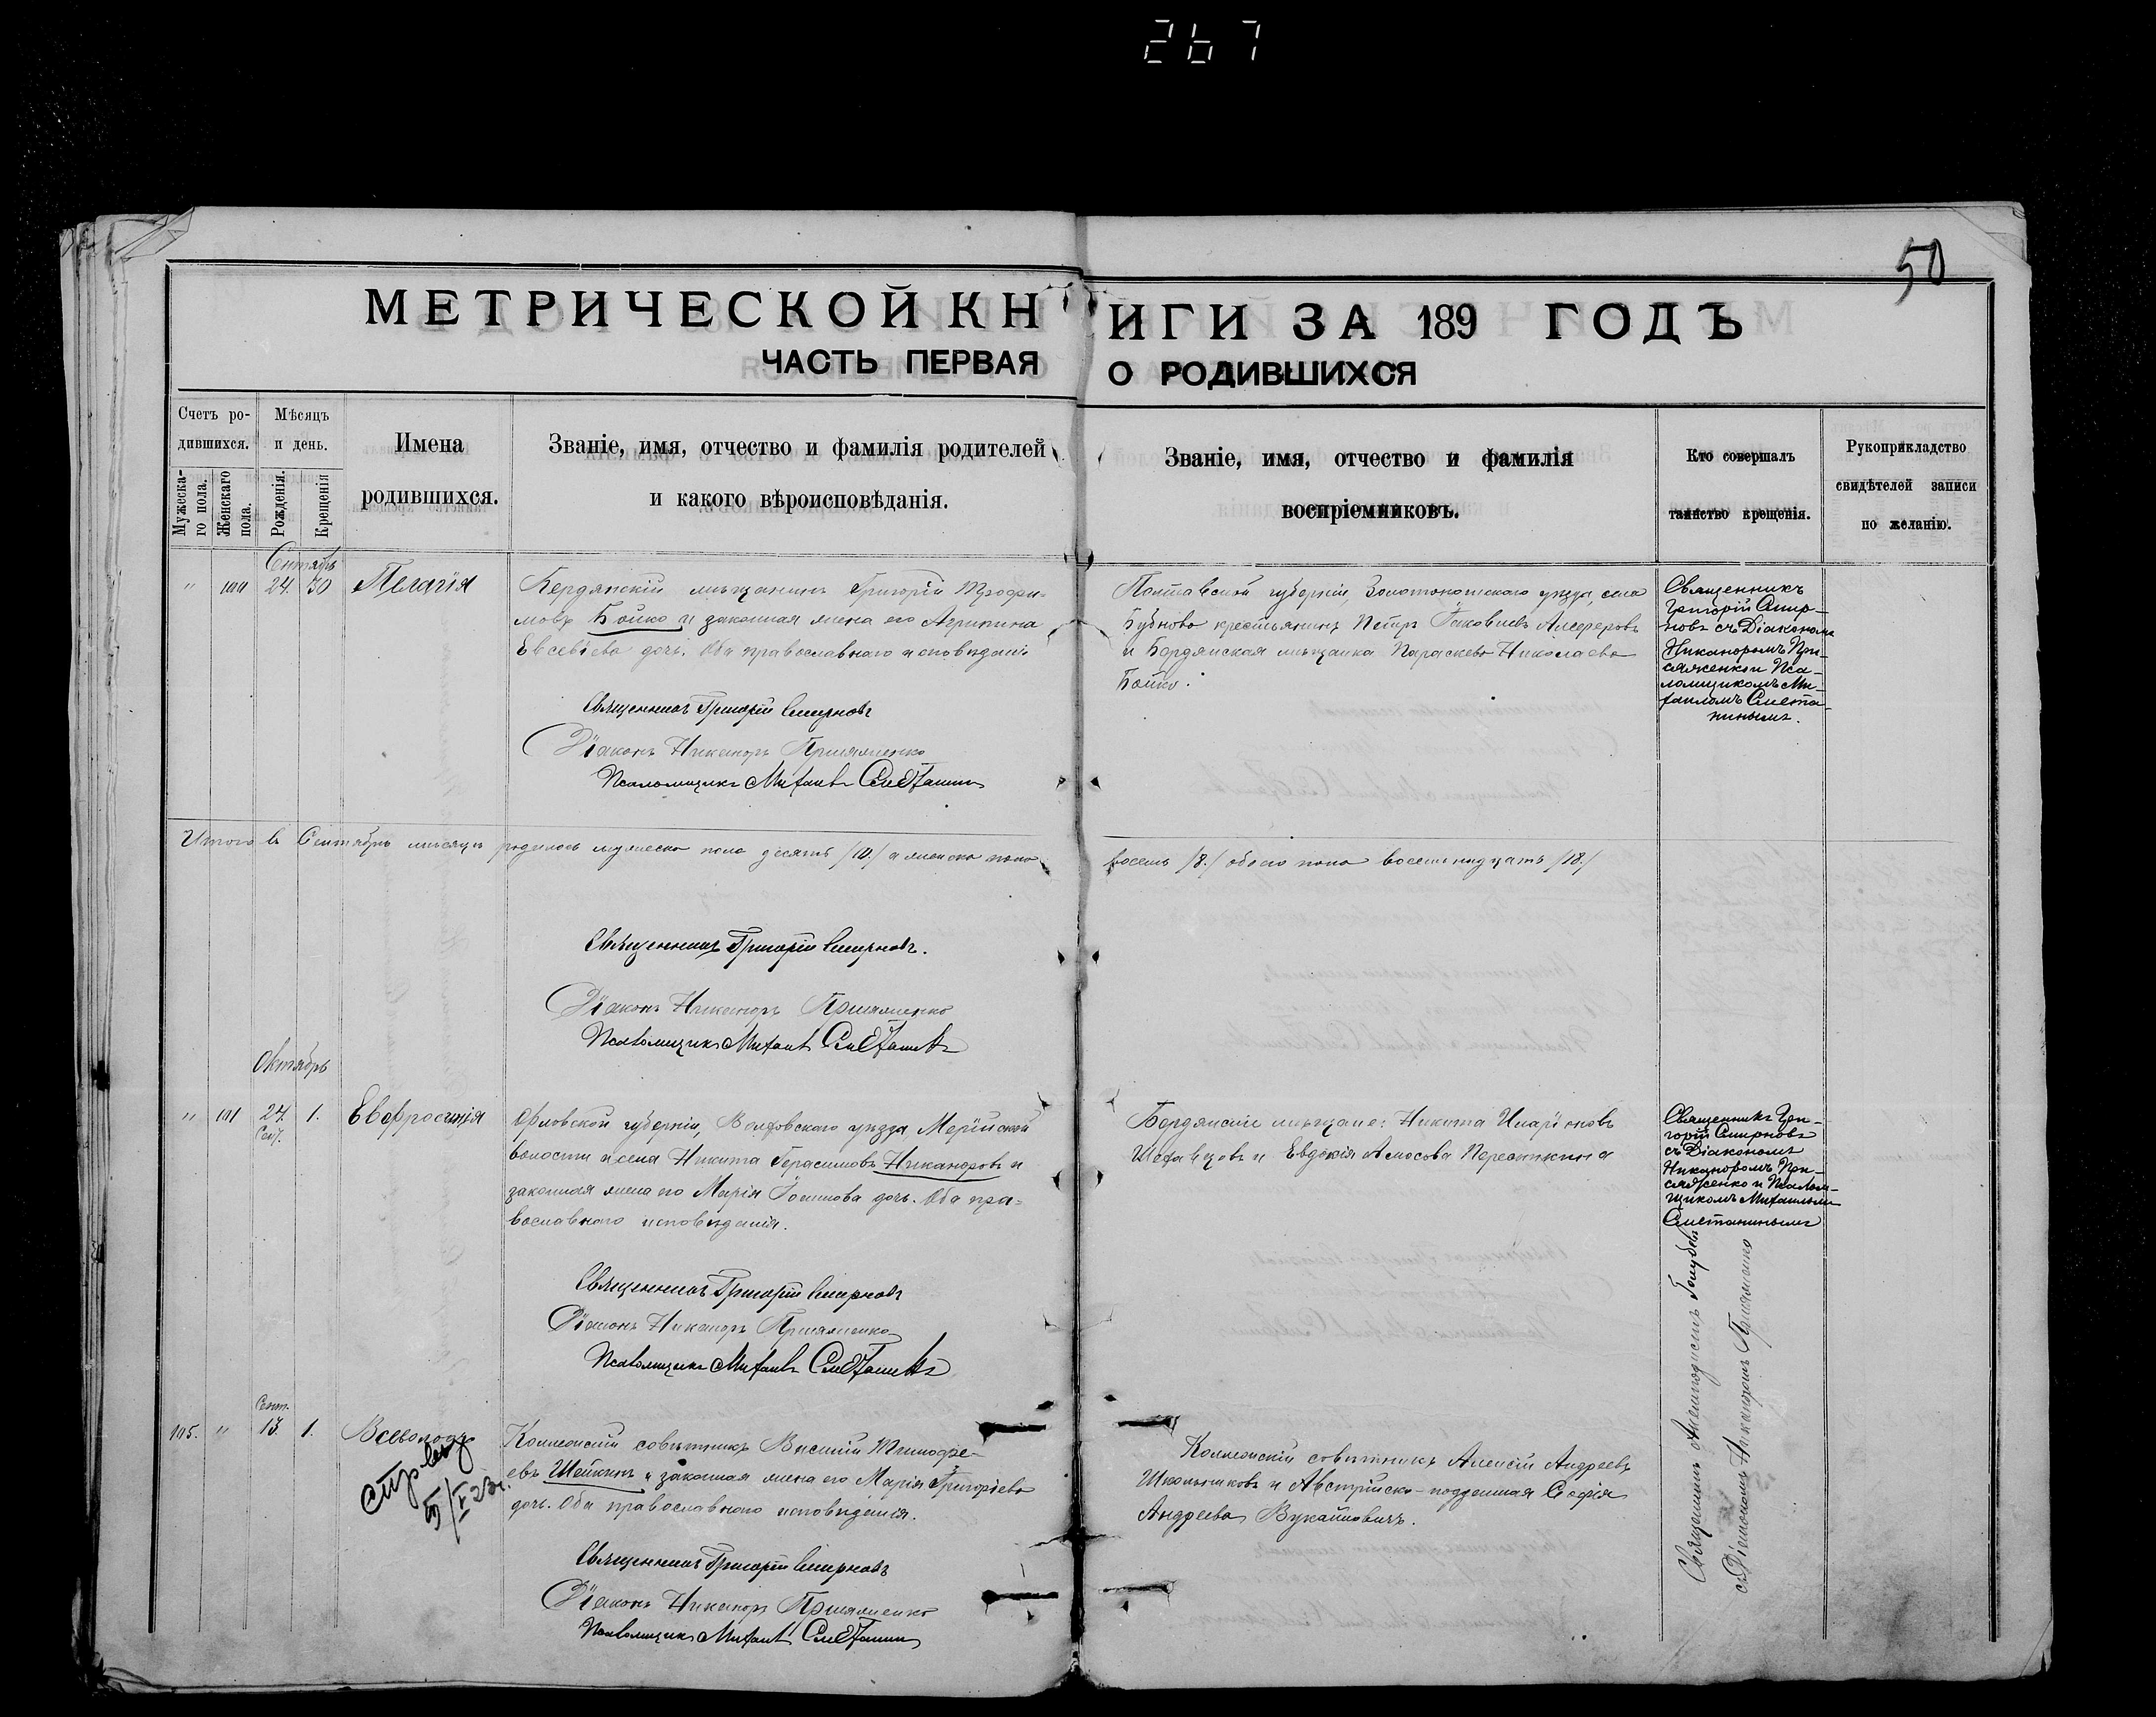 267
50
МЕТРИЧЕСКОЙ КНИГИ ЗА 189 ГОДЪ
ЧАСТЬ ПЕРВАЯ О РОДИВШИХСЯ
Счетъ ро-
дившихся.
Мужеска-
го пола.
Женскаго
пола.
Мѣсяцъ
и день.
Рожденія.
Крещенія
Имена
родившихся.
Званіе, имя, отчество и фамилія родителей
и какого вѣроисповѣданія.
Званіе, имя, отчество и фамилія
воспріемниковъ.
Кто совершалъ
таинство крещенія.
Рукоприкладство
свидѣтелей записи
по желанію.
Сентябрь
" 100 24. 30 Пелагія
Бердянскій мѣщанинъ Григорій Трофи-
мовъ Бойко и законная жена его Агрипина
Евсевіева дочь. Оба православнаго исповѣдані.
Священникъ Григорій Смирновъ
Діаконъ Никаноръ Присяженко
Псаломщикъ Михаилъ Сметанин
Полтавской губерніи, Золотоношскаго уѣзда, села
Бубново крестьянинъ Петръ Іаковлевъ
и Бердянская мѣщанка Параскева Николаева
Бойко.
Священникъ
Григорій Смир-
новъ съ Діакономъ
Никаноромъ При-
сяженко и Пса-
ломщикомъ Ми-
хаиломъ Смета-
нинымъ.
Итого въ Сентябрѣ мѣсяцѣ родилось мужеска пола десять /10./ а женска пола
восемь /8./ обоего пола восемнадцать /18./
Священникъ Григорій Смирновъ.
Діаконъ Никаноръ Присяженко
Псаломщикъ Михаилъ Сметанинъ
Октябрь
" 101 24. Сент. 1. Евфросинія
Орловской губерніи, Волховскаго уѣзда,
волости и села Никита Герасимовъ Никаноровъ и
законная жена его Марія дочь. Оба пра-
вославнаго исповѣданія.
Священникъ Григорій Смирновъ
Діаконъ Никаноръ Присяженко
Псаломщикъ Михаилъ Сметанинъ
Бердянскіе мѣщане: Никита Иларіоновъ
и Евдокія Амосова
Священникъ Гри-
горій Смирновъ
съ Діакономъ
Никаноромъ При-
сяженко и Псалом-
щикомъ Михаиломъ
Сметанинымъ
Сент.
105. " 13. 1. Всеволодъ
5/I 23г.
Коллежскій совѣтникъ Василій Тимофе-
евъ Шейкинъ и законная жена его Марія Григоріева
дочь. Оба православнаго исповѣданія.
Священникъ Григорій Смирновъ
Діаконъ Никаноръ Присяженко
Псаломщикъ Михаилъ Сметанин
Коллежскій совѣтникъ Алексій Андреевъ
Школьниковъ и Австрійско-подданная Софія
Андреева Вукайловичъ.
Священникъ
съ Діакономъ Никаноромъ Присяженко